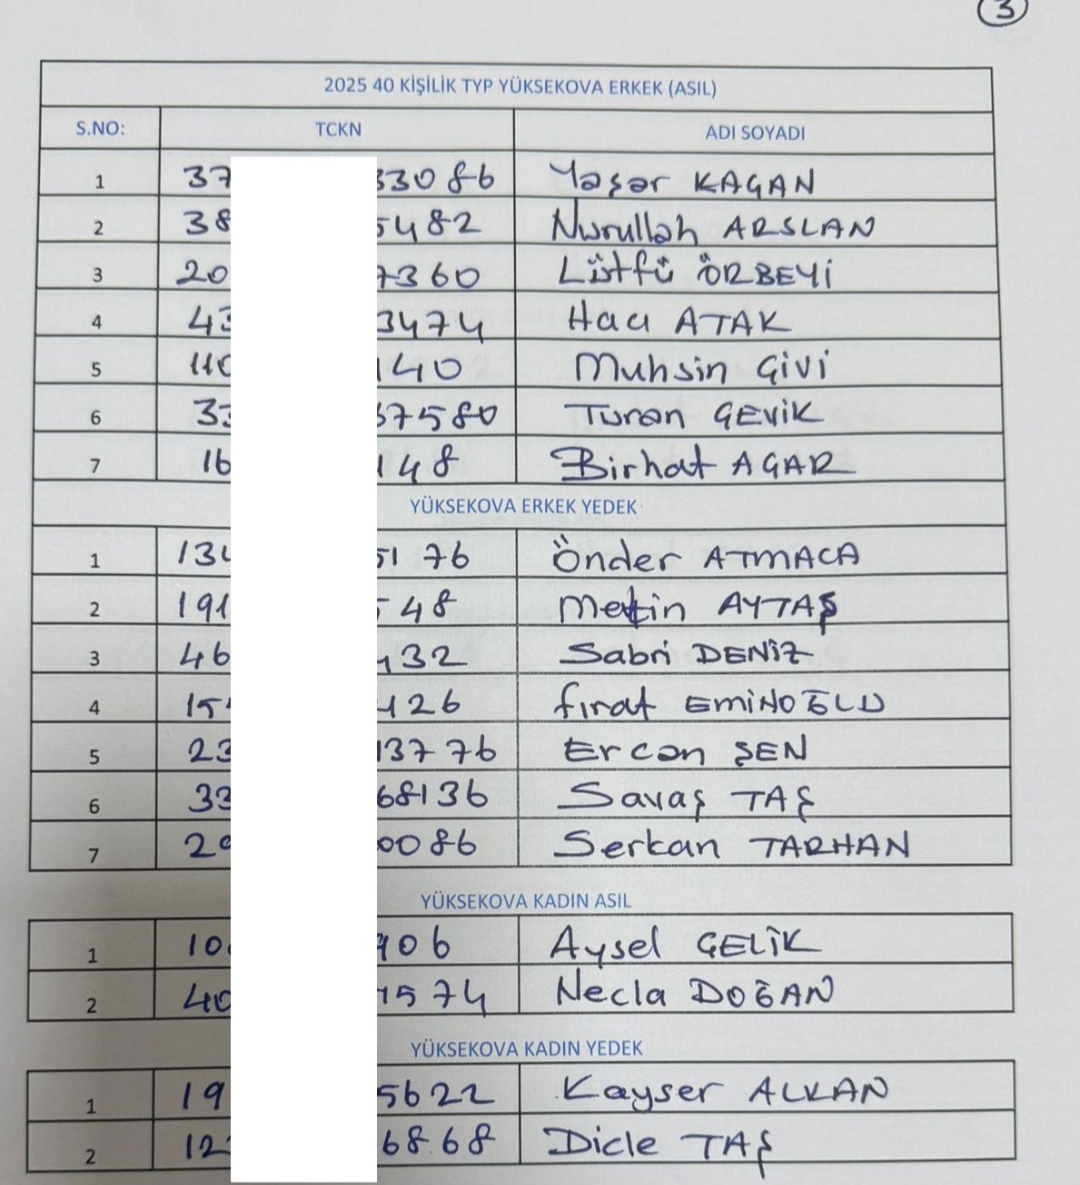 3
2025 40 KİŞİLİK TYP YÜKSEKOVA ERKEK (ASIL)
S.NO: TCKN ADI SOYADI
1 37 33086 Yaşar KAÇAN
2 38 5482 Nurullah ARSLAN
3 20 7360 Lütfü ÖRBEYİ
4 43 3474 Hacı ATAK
5 110 140 Muhsin GİVİ
6 33 37580 Turan GEVİK
7 16 148 Birhat AGAR
YÜKSEKOVA ERKEK YEDEK
1 134 5176 Önder ATMACA
2 191 548 Metin AYTAŞ
3 46 432 Sabri DENİZ
4 15 426 fırat EMİNOĞLU
5 23 13776 Ercan ŞEN
6 33 68136 Savaş TAŞ
7 20 0086 Serkan TARHAN
YÜKSEKOVA KADIN ASIL
1 10 906 Aysel ÇELİK
2 40 1574 Necla DOĞAN
YÜKSEKOVA KADIN YEDEK
1 19 5622 Kayser ALKAN
2 12 6868 Dicle TAŞ